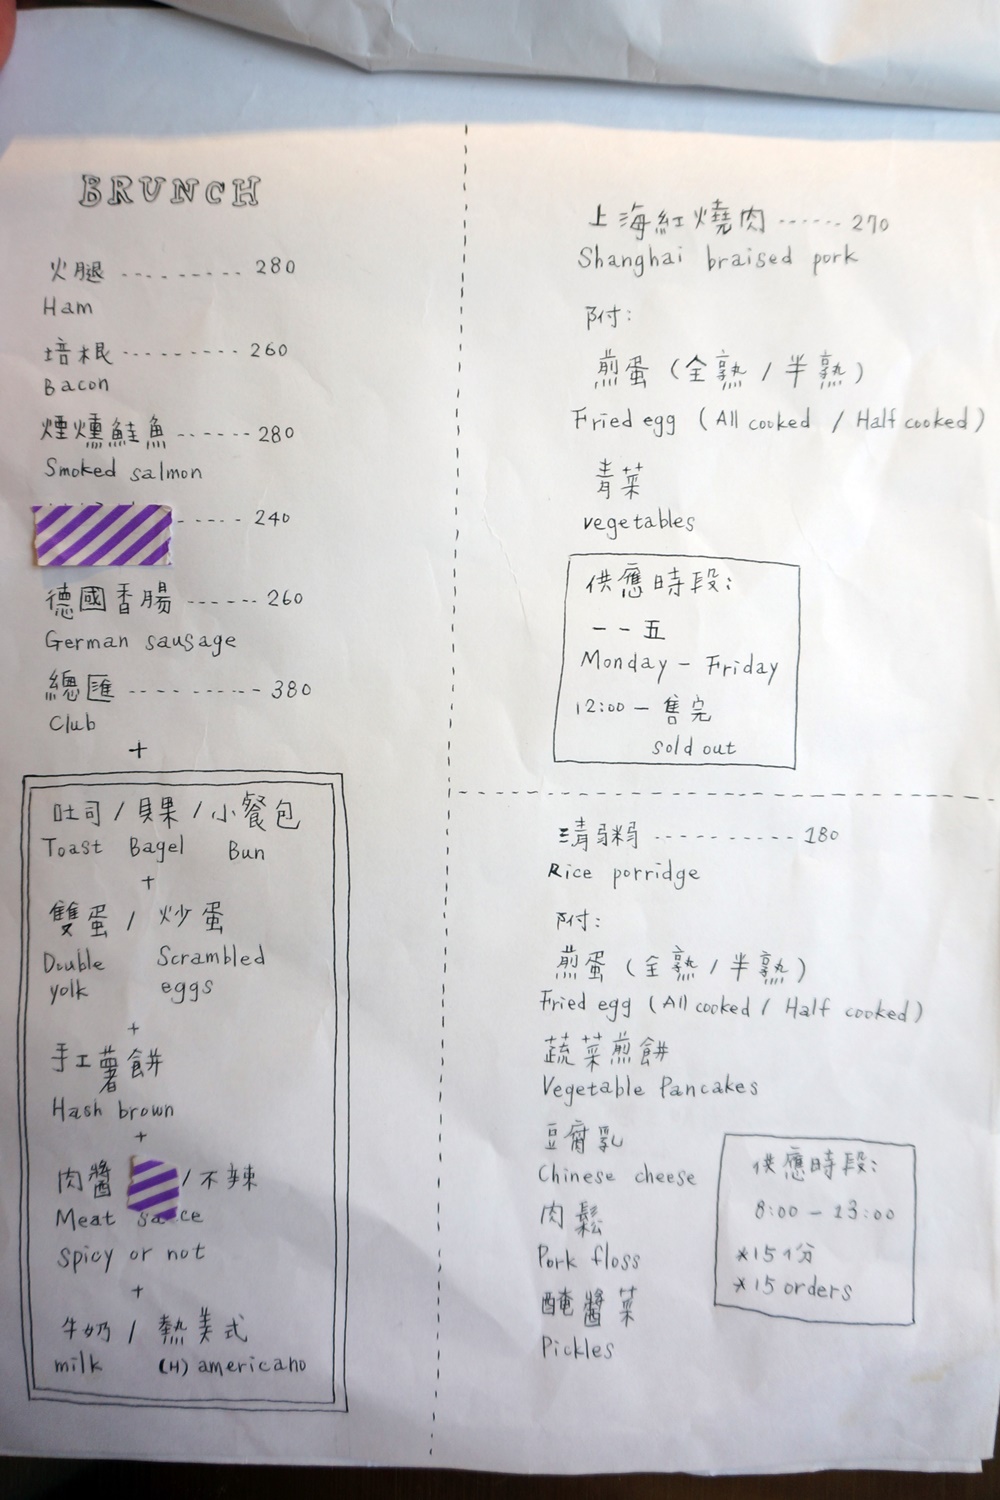 BRUNCH
火腿 ---------- 280
Ham
培根 ---------- 260
Bacon
煙燻鮭魚 ------ 280
Smoked salmon
----- 240
德國香腸 ------ 260
German sausage
總匯 ----------- 380
Club
+
吐司 / 貝果 / 小餐包
Toast Bagel Bun
+
雙蛋 / 炒蛋
Double Scrambled
yolk eggs
+
手工薯餅
Hash brown
+
肉醬 / 不辣
Meat sauce
Spicy or not
+
牛奶 / 熱美式
milk (H) americano
上海紅燒肉 ------ 270
Shanghai braised pork
附:
煎蛋 (全熟 / 半熟)
Fried egg (All cooked / Half cooked)
青菜
vegetables
供應時段:
一 - 五
Monday - Friday
12:00 - 售完
sold out
清粥 ----------- 180
Rice porridge
附:
煎蛋 (全熟 / 半熟)
Fried egg (All cooked / Half cooked)
蔬菜煎餅
Vegetable Pancakes
豆腐乳
Chinese cheese
肉鬆
Pork floss
醃醬菜
Pickles
供應時段:
8:00 - 13:00
*15份
*15 orders